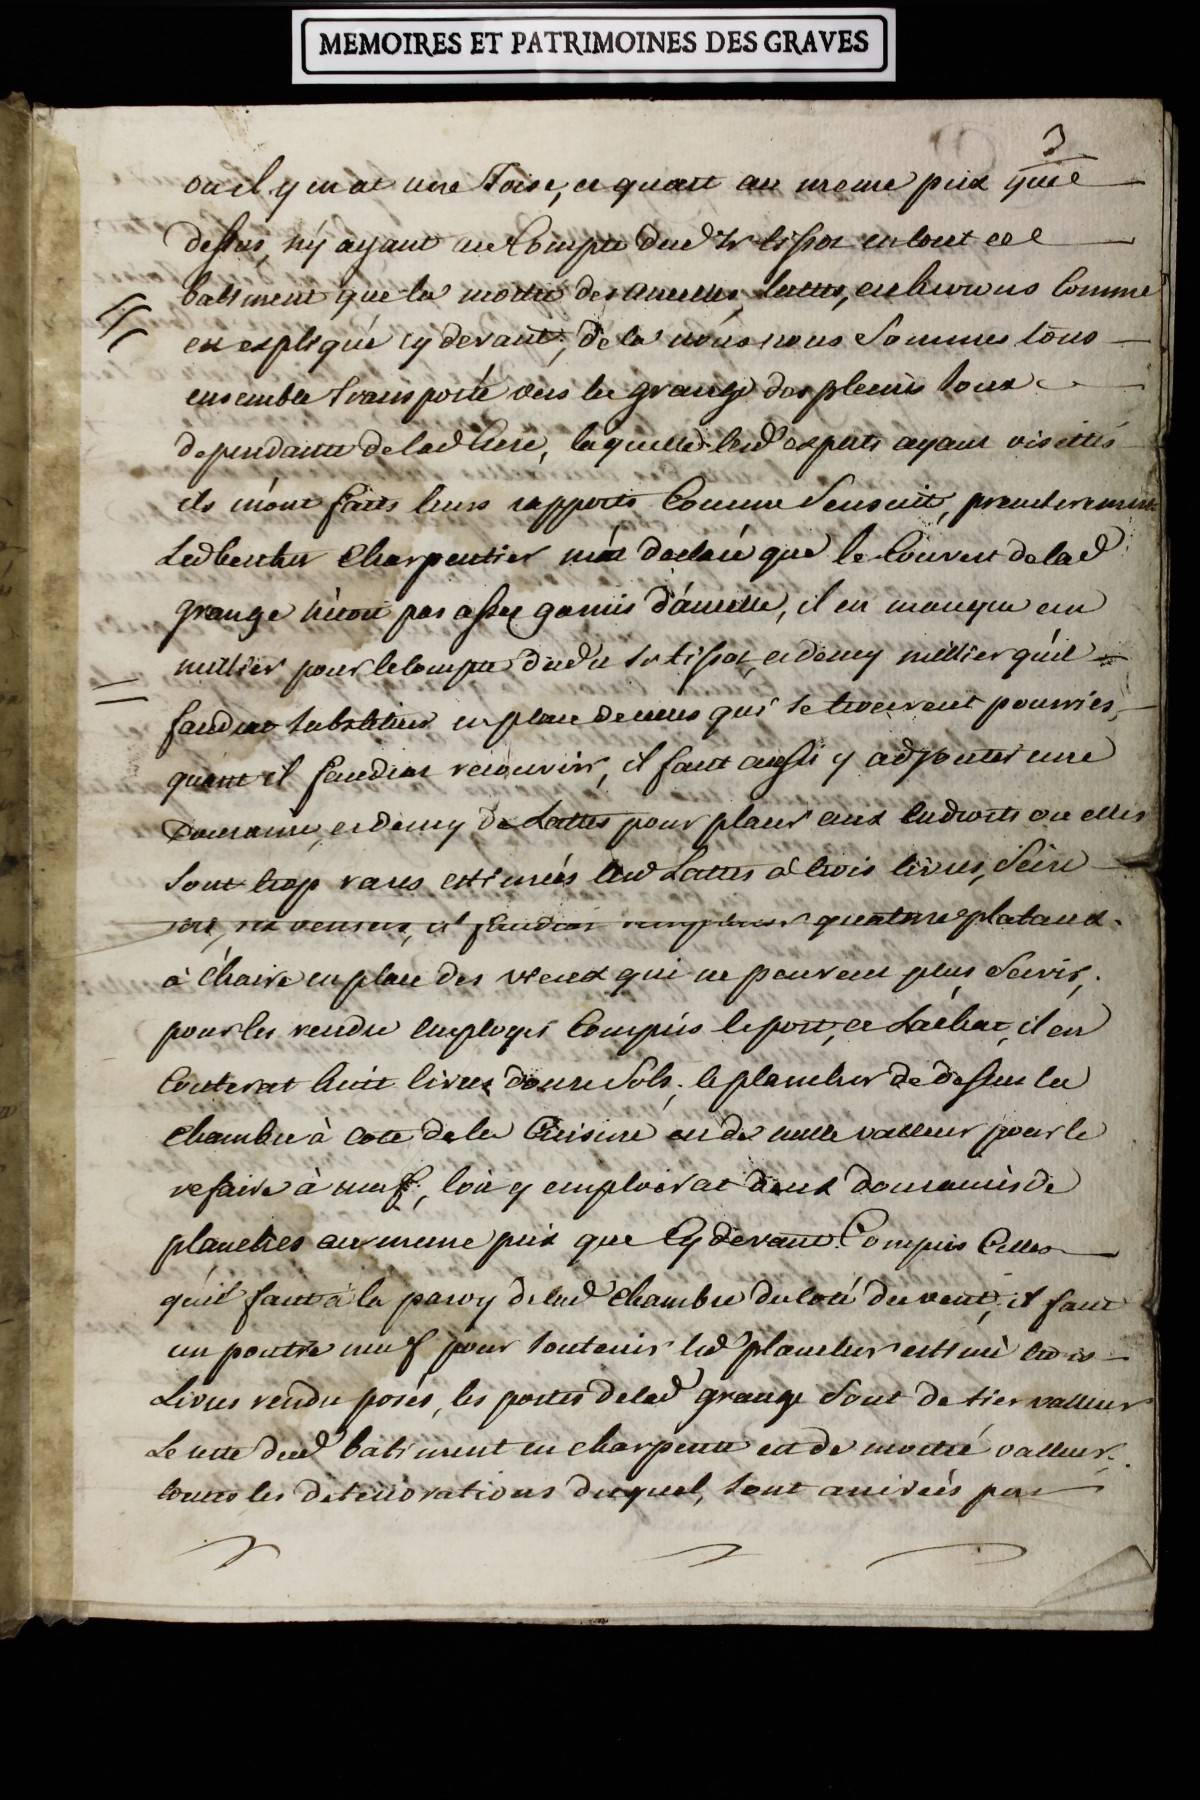 MEMOIRES ET PATRIMOINES DES GRAVES
3
ou il y en at une Toise, et quart au meme prix que
dessus, n'y ayant au Compte dud Sr tissot en tout ce
batiment que la moitié des ancelles, lattes, et chevrons Comme
est expliqué cy devant, de la nous nous Sommes tous
ensemble transporté vers la grange des pleins tous
dependante de lad Cure, laquelle lesd experts ayant visittés
ils m'ont faits leurs rapports Comme S'ensuit, premierement
Led Charpentier m'at declaré que le Couvert de lad
grange n'étoit pas assez garnis d'ancelle, il en manque un
millier pour le Compte dud Sr tissot, et demy millier qu'il
faudrat substituer en place de celles qui se trouvent pourries,
quant il faudrat recouvrir, il faut aussi y adjouter une
Douzaine, et demy de Lattes pour placer aux Endroits ou elles
Sont trop rares estimées lesd Lattes à trois livres, Seize
il faudrat remplacer quatorze plataux
à Chaire en place des vieux qui ne peuvent plus Servir,
pour les rendre employés Compris le port, et L'achat, il en
Couterat huit livres douze Sols, le plancher de dessus la
Chambre à Coté de la Cuisine est de nulle valleur pour le
refaire à neuf, l'on y emploierat deux douzaines de
planches au meme prix que Cy devant Compris Celles
qu'il faut à la paroy de lad Chambre du Coté du vent, il faut
un poutre neuf pour soutenir led plancher estimé trois
Livres rendu posés, les portes de lad grange Sont de tier valleur
Le reste dud batiment en charpente est de moitié valleur,
toutes les deteriorations duquel, sont arrivées par